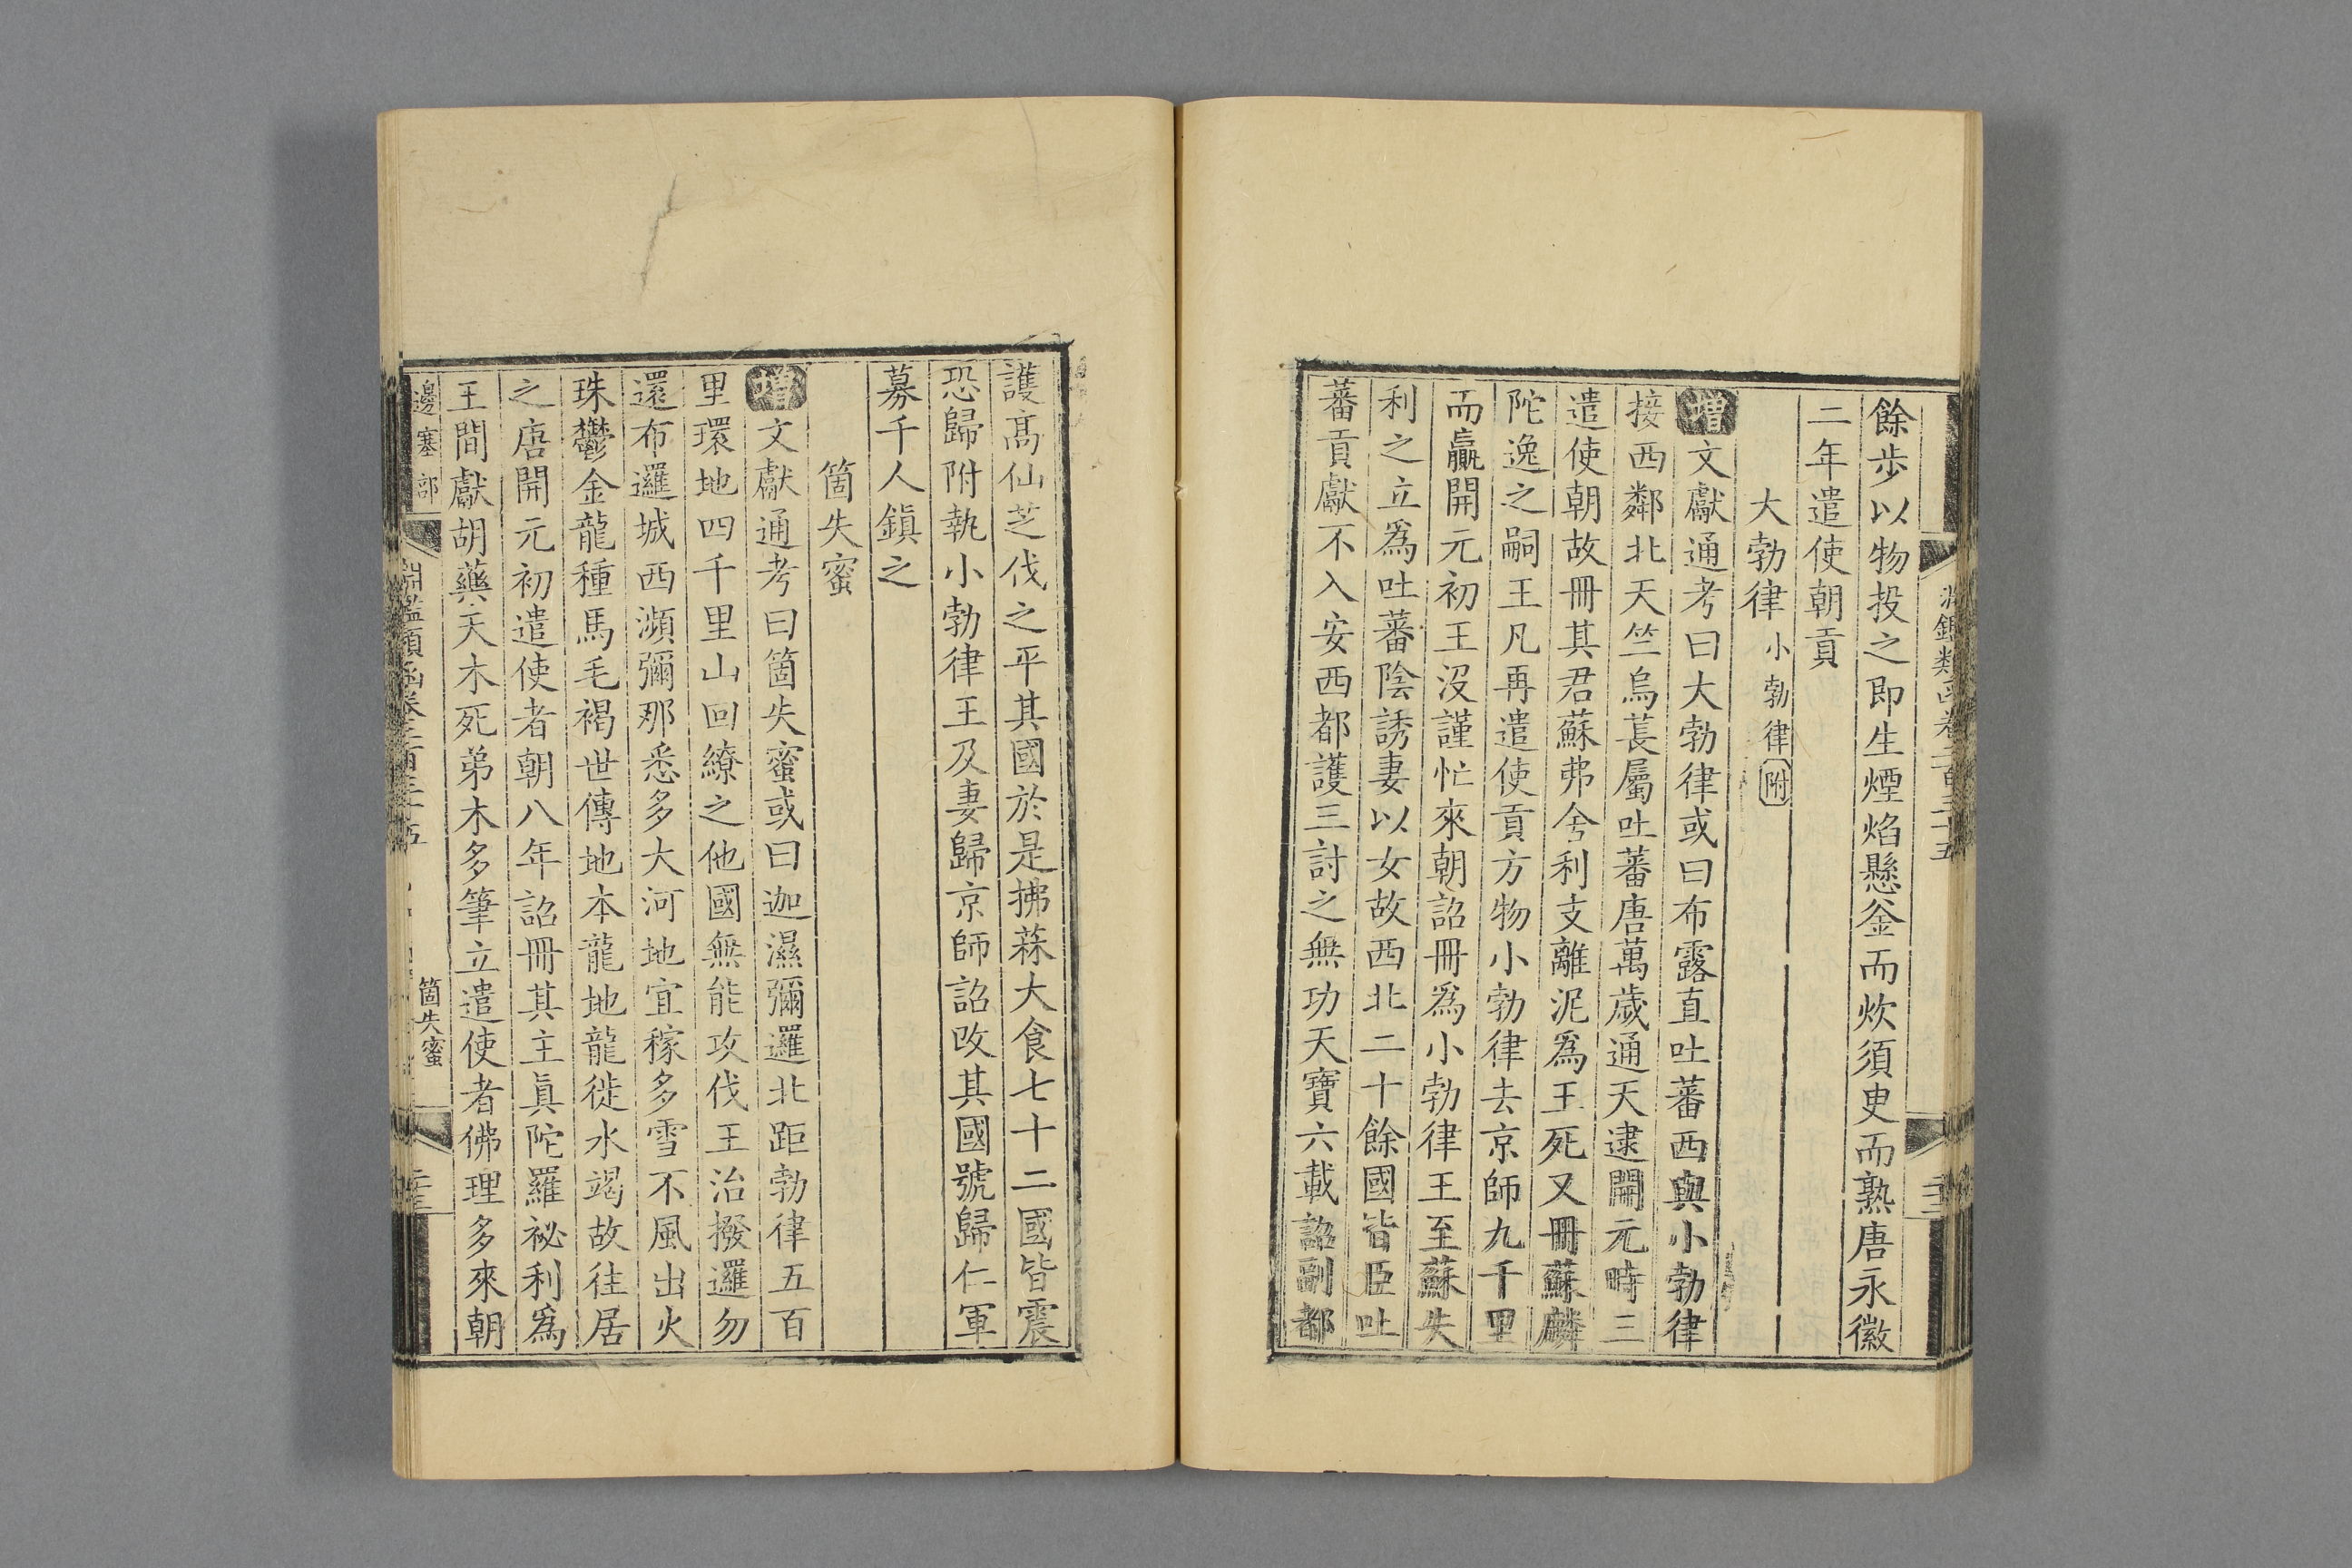 餘歩以物投之即生煙焰懸釜而炊須臾而熟唐永徽
二年遣使朝貢
大勃律小勃律附
增文獻通考曰大勃律或曰布露直吐蕃西與小勃律
接西鄰北天竺烏萇屬吐蕃唐萬歲通天逮開元時三
遣使朝故冊其君蘇弗舍利支離泥為王死又冊蘇麟
陀逸之嗣王凡再遣使貢方物小勃律去京師九千里
而贏開元初王沒謹忙來朝詔冊為小勃律王至蘇失
利之立為吐蕃陰誘妻以女故西北二十餘國皆臣吐
蕃貢獻不入安西都護三討之無功天寶六載詔副都
護高仙芝伐之平其國於是拂菻大食七十二國皆震
恐歸附執小勃律王及妻歸京師詔改其國號歸仁軍
募千人鎮之
箇失蜜
增文獻通考曰箇失蜜或曰迦濕彌邏北距勃律五百
里環地四千里山回繚之他國無能攻伐王治撥邏勿
還布邏城西瀕彌那悉多大河地宜稼多雪不風出火
珠鬱金龍種馬毛褐世傳地本龍地龍徙水竭故往居
之唐開元初遣使者朝八年詔冊其主真陀羅祕利為
王間獻胡藥天木死弟木多筆立遣使者佛理多來朝
邊塞部
淵鑑類函卷二百三十五
箇失蜜